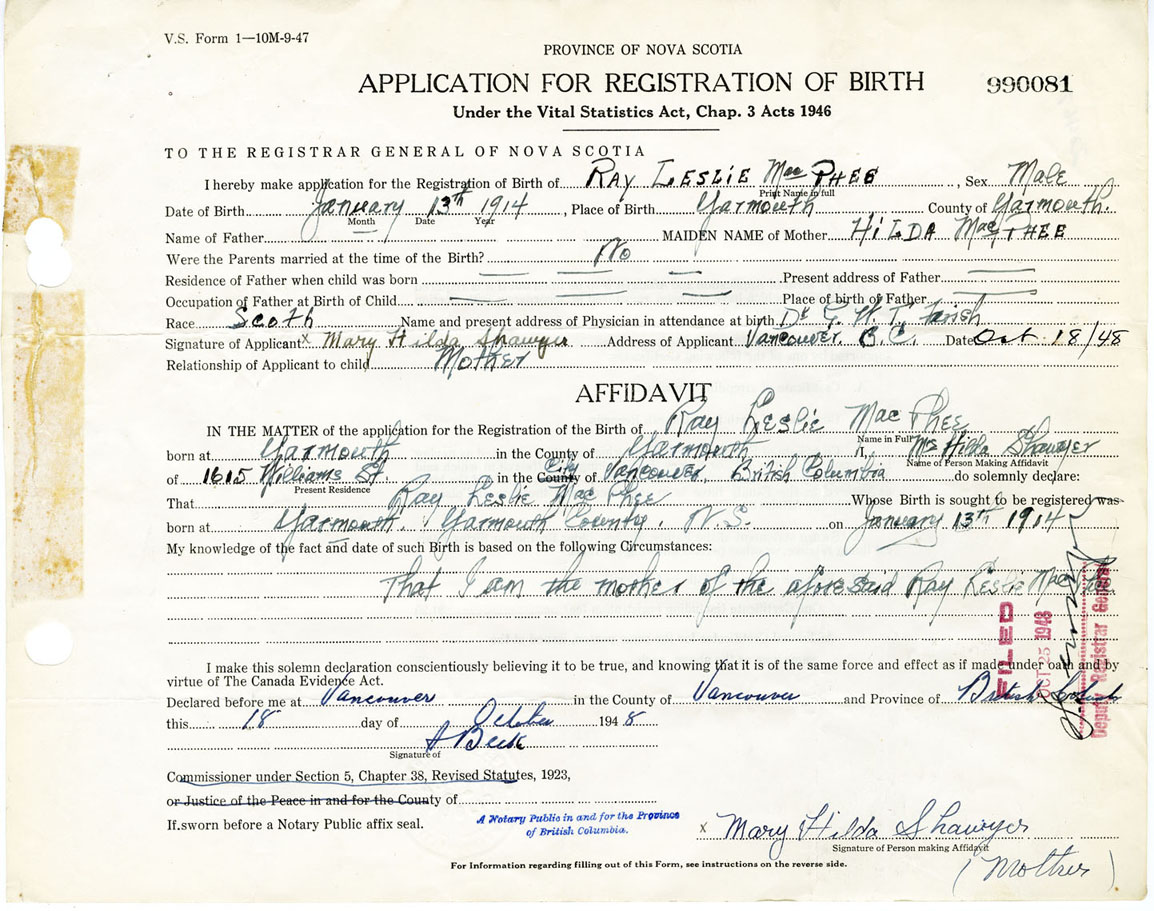 V.S. Form 1—10M-9-47
PROVINCE OF NOVA SCOTIA
APPLICATION FOR REGISTRATION OF BIRTH
990081
Under the Vital Statistics Act, Chap. 3 Acts 1946
TO THE REGISTRAR GENERAL OF NOVA SCOTIA
I hereby make application for the Registration of Birth of RAY LESLIE MacPHEE, Sex Male
Print Name in full
Date of Birth January 13th 1914, Place of Birth Yarmouth County of Yarmouth.
Month Date Year
Name of Father MAIDEN NAME of Mother HILDA MacPHEE
Were the Parents married at the time of the Birth? No
Residence of Father when child was born Present address of Father
Occupation of Father at Birth of Child Place of birth of Father
Race Scoth Name and present address of Physician in attendance at birth Dr G. W. T. Farish
Signature of Applicant x Mary Hilda Shawyer Address of Applicant Vancouver. B.C. Date Oct 18/48
Relationship of Applicant to child Mother
AFFIDAVIT
IN THE MATTER of the application for the Registration of the Birth of Ray Leslie MacPhee
Name in Full
born at Yarmouth in the County of Yarmouth I, Mrs Hilda Shawyer
Name of Person Making Affidavit
of 1615 Williams St. in the County City of Vancouver, British Columbia do solemnly declare:
Present Residence
That Ray Leslie MacPhee Whose Birth is sought to be registered was
born at Yarmouth. Yarmouth County. N.S. on January 13th 1914
My knowledge of the fact and date of such Birth is based on the following Circumstances:
That I am the mother of the aforesaid Ray Leslie MacPhee
FILED
OCT 25 1948
Deputy Registrar General
I make this solemn declaration conscientiously believing it to be true, and knowing that it is of the same force and effect as if made under oath and by
virtue of The Canada Evidence Act.
Declared before me at Vancouver in the County of Vancouver and Province of British Columbia
this 18 day of October 1948
A Beck
Signature of
Commissioner under Section 5, Chapter 38, Revised Statutes, 1923,
or Justice of the Peace in and for the County of
If sworn before a Notary Public affix seal.
A Notary Public in and for the Province
of British Columbia.
x Mary Hilda Shawyer
Signature of Person making Affidavit
(Mother)
For Information regarding filling out of this Form, see instructions on the reverse side.